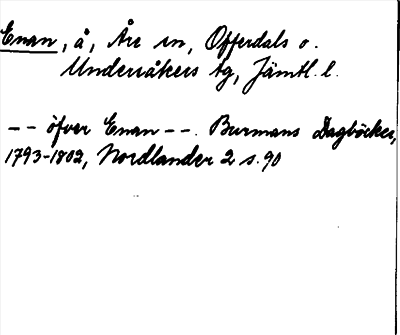 Enan, å, Åre sn, Offerdals o.
Undersåkers tg, Jämtl. l.
-- öfver Enan --. Burmans Dagböcker,
1793-1802, Nordlander 2 s. 90